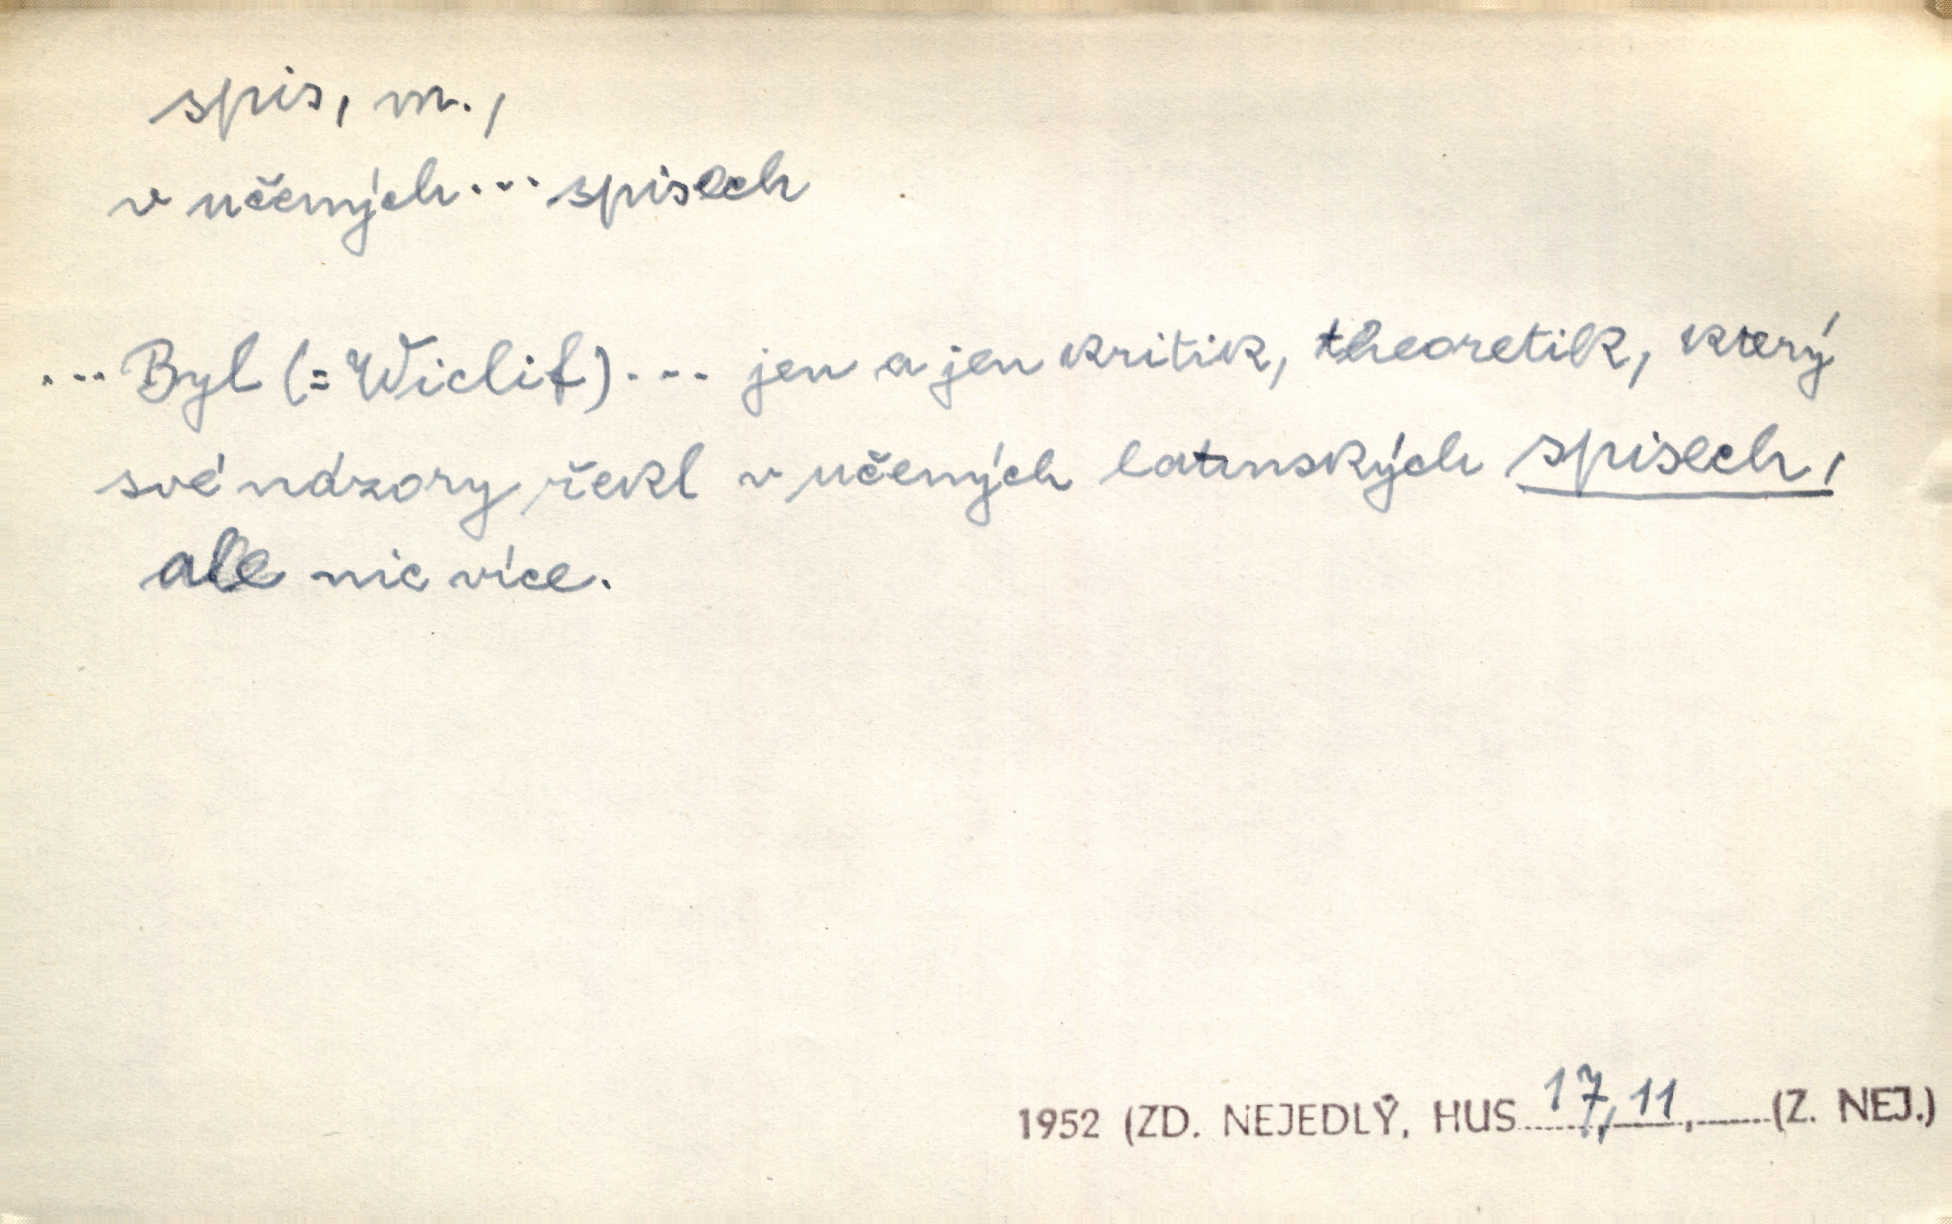 spis, m.,
v učených... spisech
... Byl (= Wiclif)... jen a jen kritik, theoretik, který
své názory řekl v učených latinských spisech,
ale nic více.
1952 (ZD. NEJEDLÝ, HUS 17, 11, (Z. NEJ.)